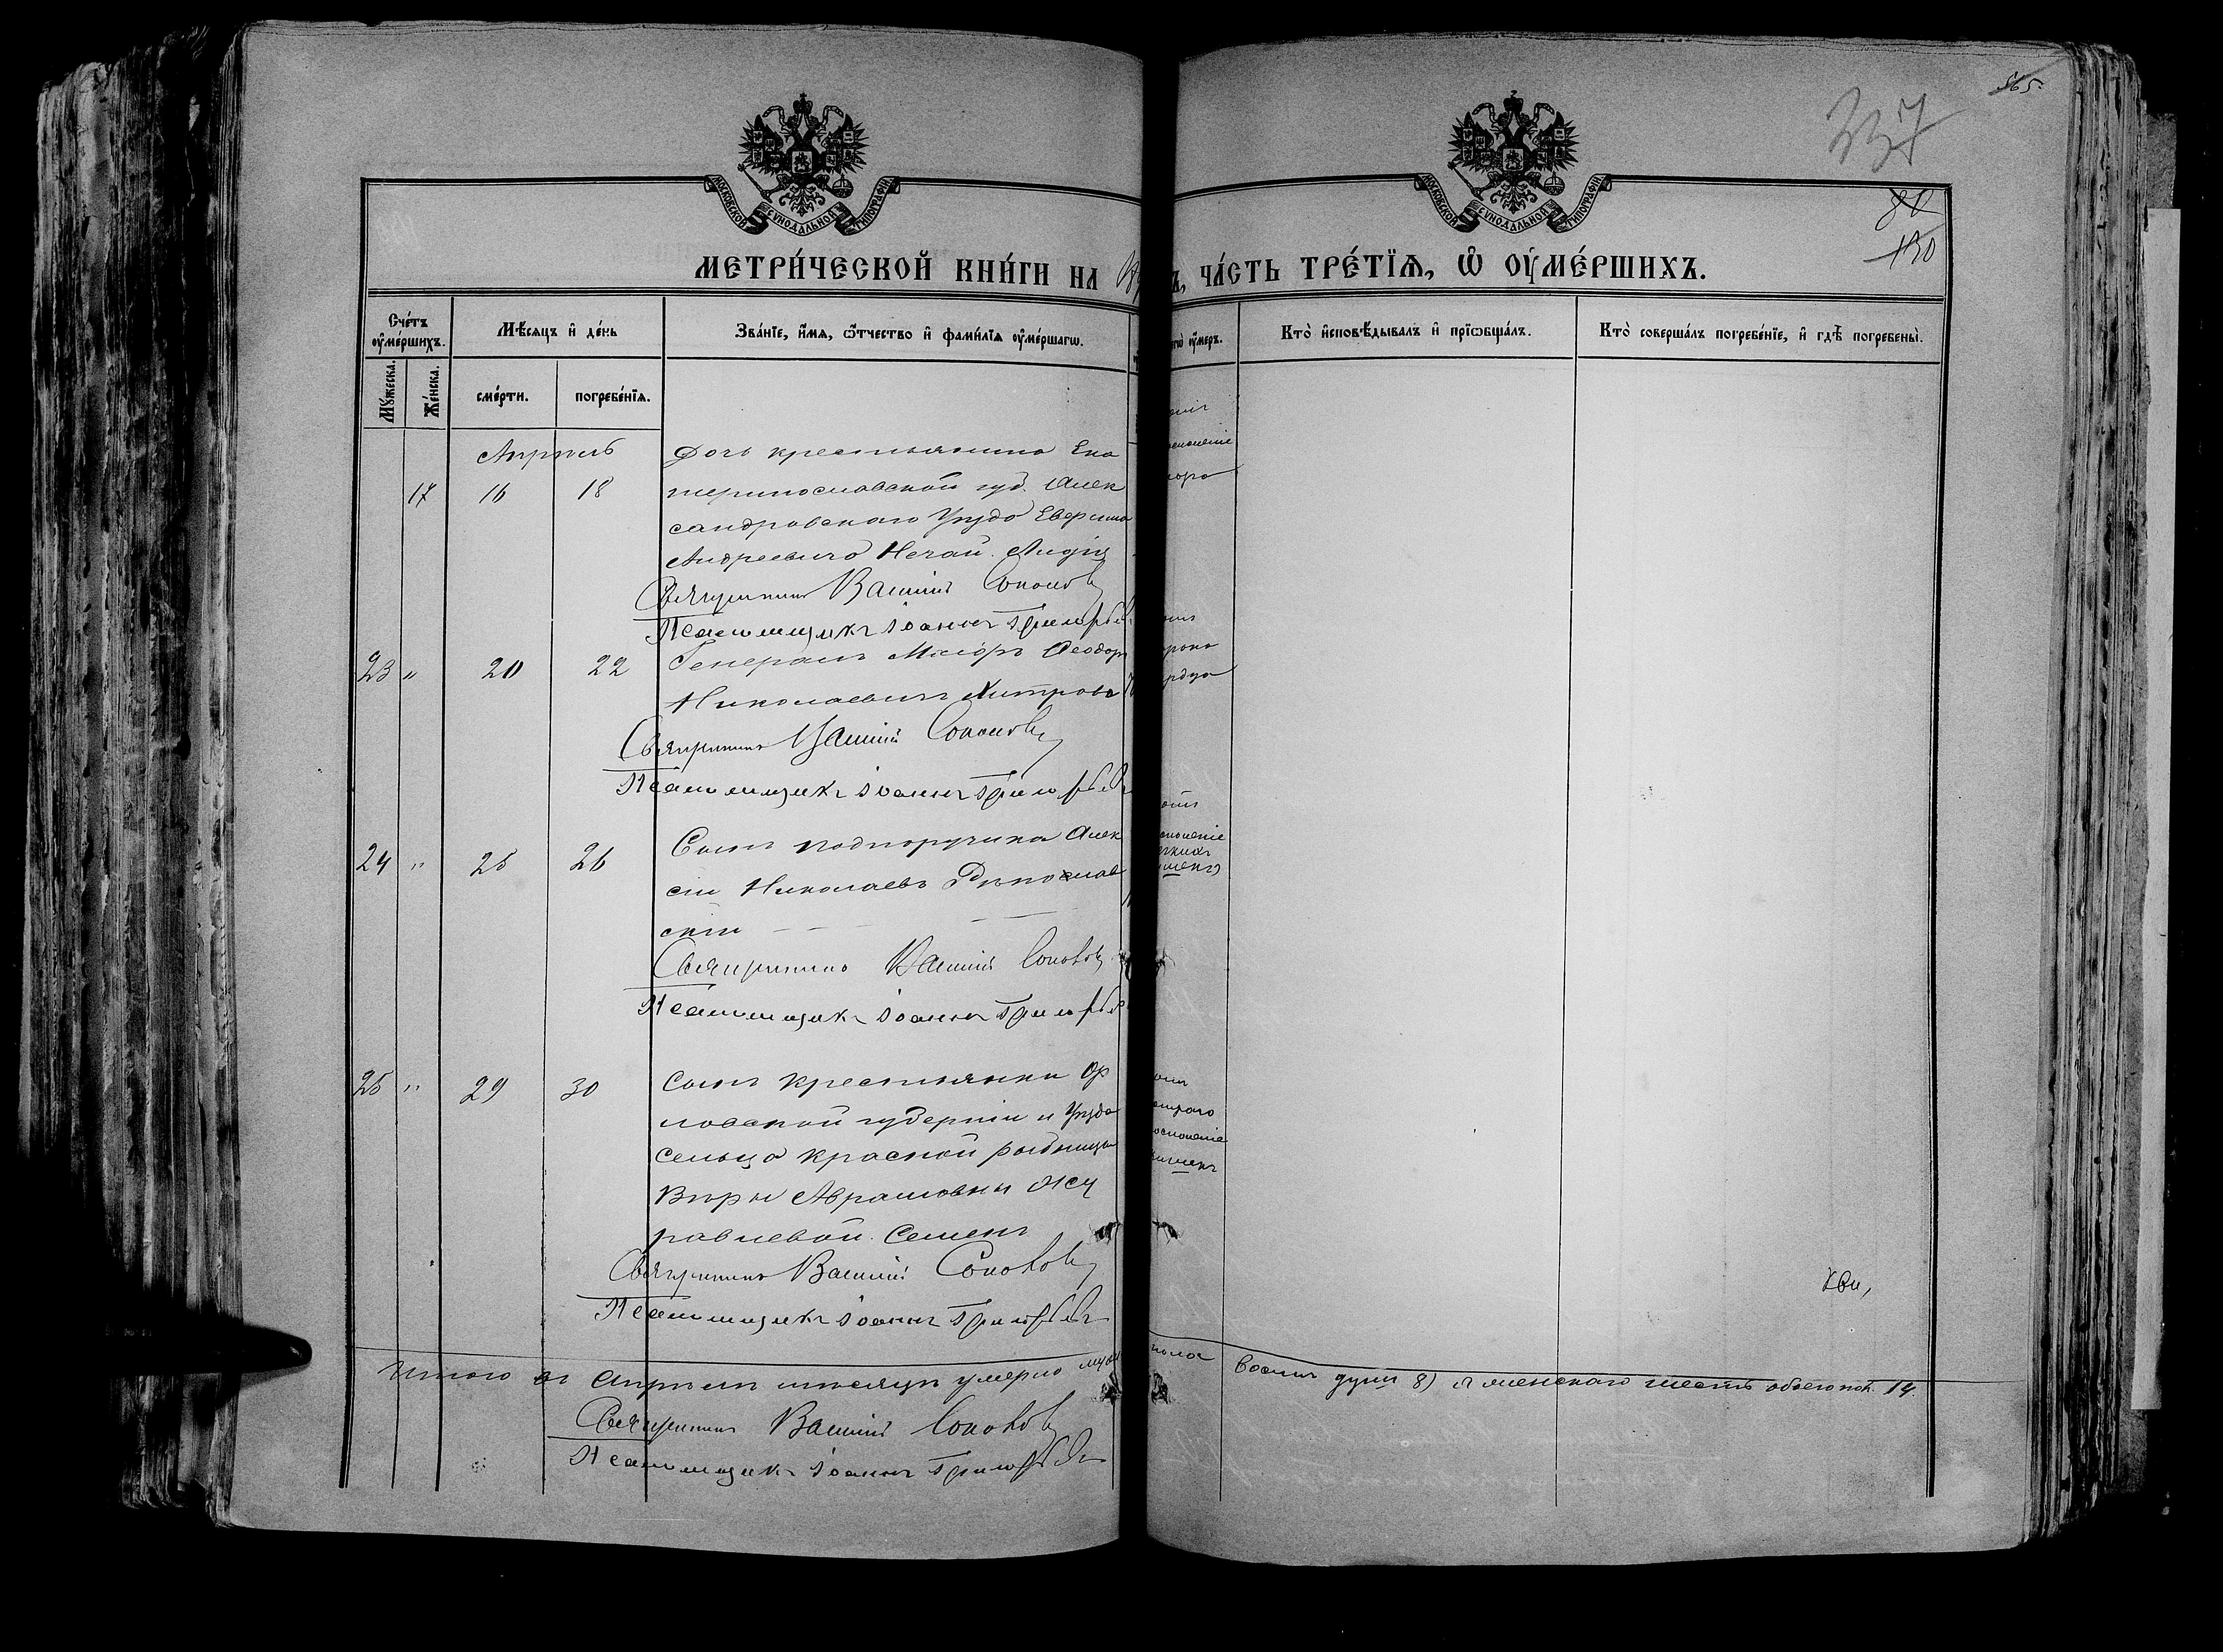 565.
337
80
130
МОСКОВСКОЙ СѴНОДАЛЬНОЙ ТИПОГРАФІИ
МОСКОВСКОЙ СѴНОДАЛЬНОЙ ТИПОГРАФІИ
МЕТРИ́ЧЕСКОЙ КНИ́ГИ НА 18
Ъ, ЧА́СТЬ ТРЕ́ТЇѦ, Ѡ҆ ОУ҆МЕ́РШИХЪ.
Сче́тъ оу҆ме́ршихъ.
Мѣ́сяцъ и҆ де́нь
Зва́нїе, и҆́мѧ, ѻ҆́тчество и҆ фами́лїѧ оу҆ме́ршагѡ.
чегѡ̀ оу҆́меръ.
Кто̀ и҆сповѣ́дывалъ и҆ прїѡбща́лъ.
Кто̀ соверша́лъ погребе́нїе, и҆ гдѣ̀ погребены̀.
Мꙋ́жеска.
Же́нска.
сме́рти.
погребе́нїѧ.
Апрѣль
Дочь крестьянина Ека
17 16 18 теринославской губ. Алек
сандровскаго Уѣзда
Андреевича Нечай. Лидія
Священникъ Василій Соколовъ
Псаломщикъ Іоаннъ Григорьевъ
23 " 20 22 Генералъ Маіоръ Ѳеодоръ
Николаевичъ Хитрово
Священникъ Василій Соколовъ
Псаломщикъ Іоаннъ Григорьевъ
Сынъ подпоручика Алек
24 " 25 26
сѣй Николаевъ
скій
Священникъ Василій Соколовъ
Псаломщикъ Іоаннъ Григорьевъ
25 " 29 30 Сынъ крестьянки Ор
ловской губерніи и Уѣзда
сельца Красной рыбницы
Вѣры Аврамовны Жу
равлевой. Семенъ
Священникъ Василій Соколовъ
Псаломщикъ Іоаннъ Григорьевъ
Итого въ Апрѣлѣ мѣсяцѣ умерло муж
пола восемь душъ 8) а женскаго шесть обоего пол. 14.
Священникъ Василій Соколовъ
Псаломщикъ Іоаннъ Григорьевъ